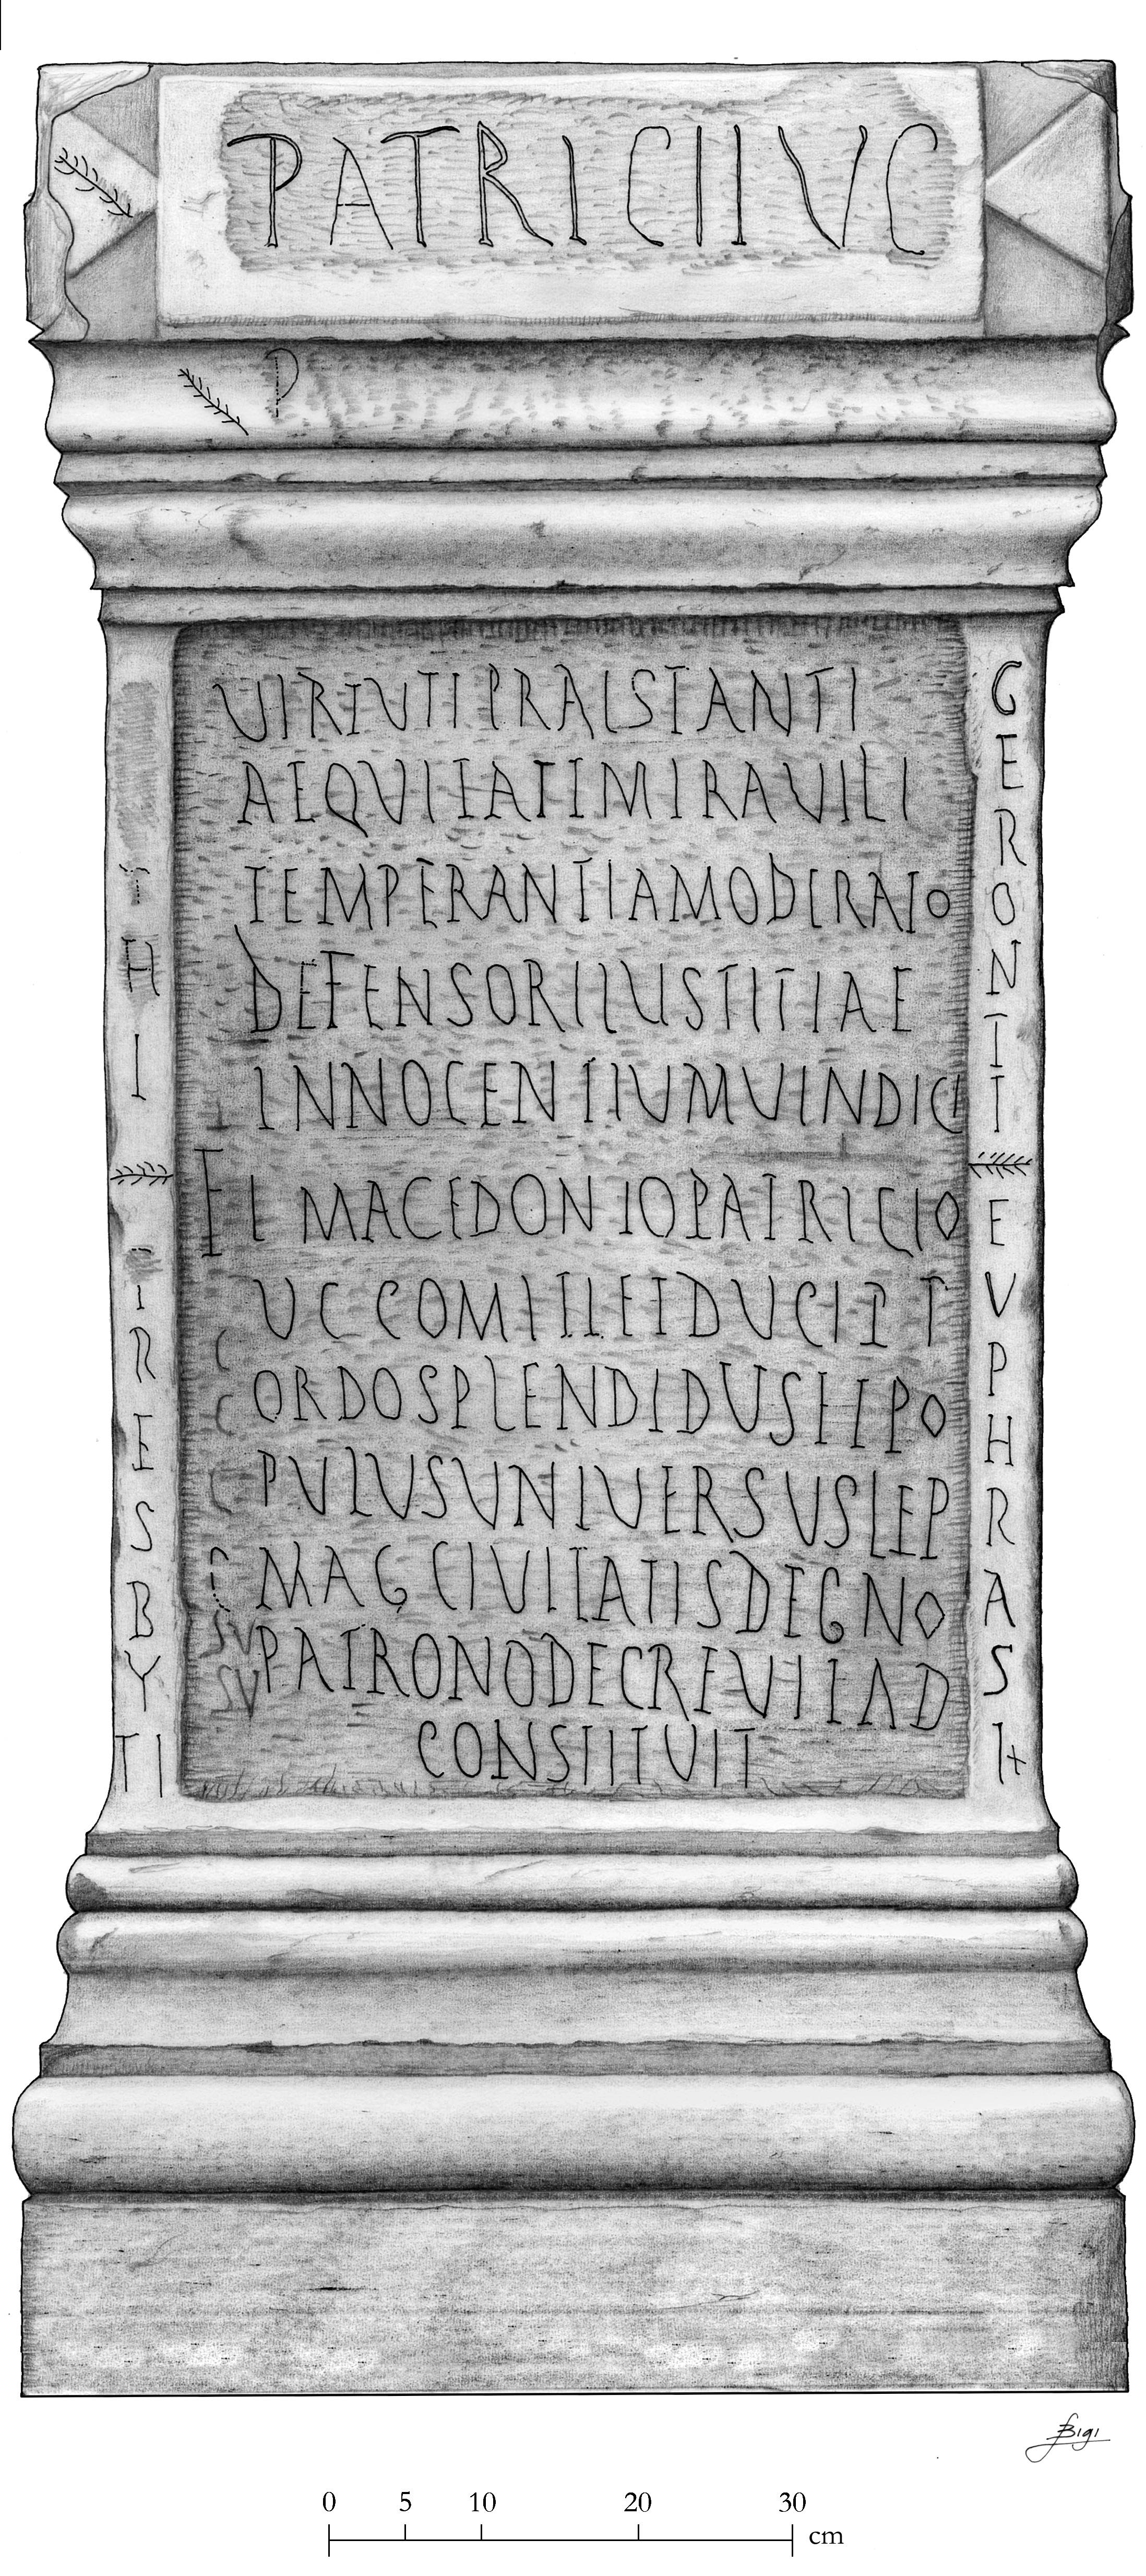 PATRICII VC
P
VIRTVTI PRAESTANTI
AEQVITATI MIRAVILI
TEMPERANTIA MODERATO
DEFENSORI IVSTITIAE
INNOCENTIVM VINDICI
FL MACEDONIO PATRICIO
VC COMITI ET DVCI P T
ORDO SPLENDIDVS ET PO
PVLVS VNIVERSVS LEP
MAG CIVITATIS DEGNO
PATRONO DECREVIT AD
CONSTITVIT
H
I
I
R
E
S
B
Y
TI
G
E
R
O
N
T
I
E
V
P
H
R
A
S
I
Bigi
0 5 10 20 30 cm